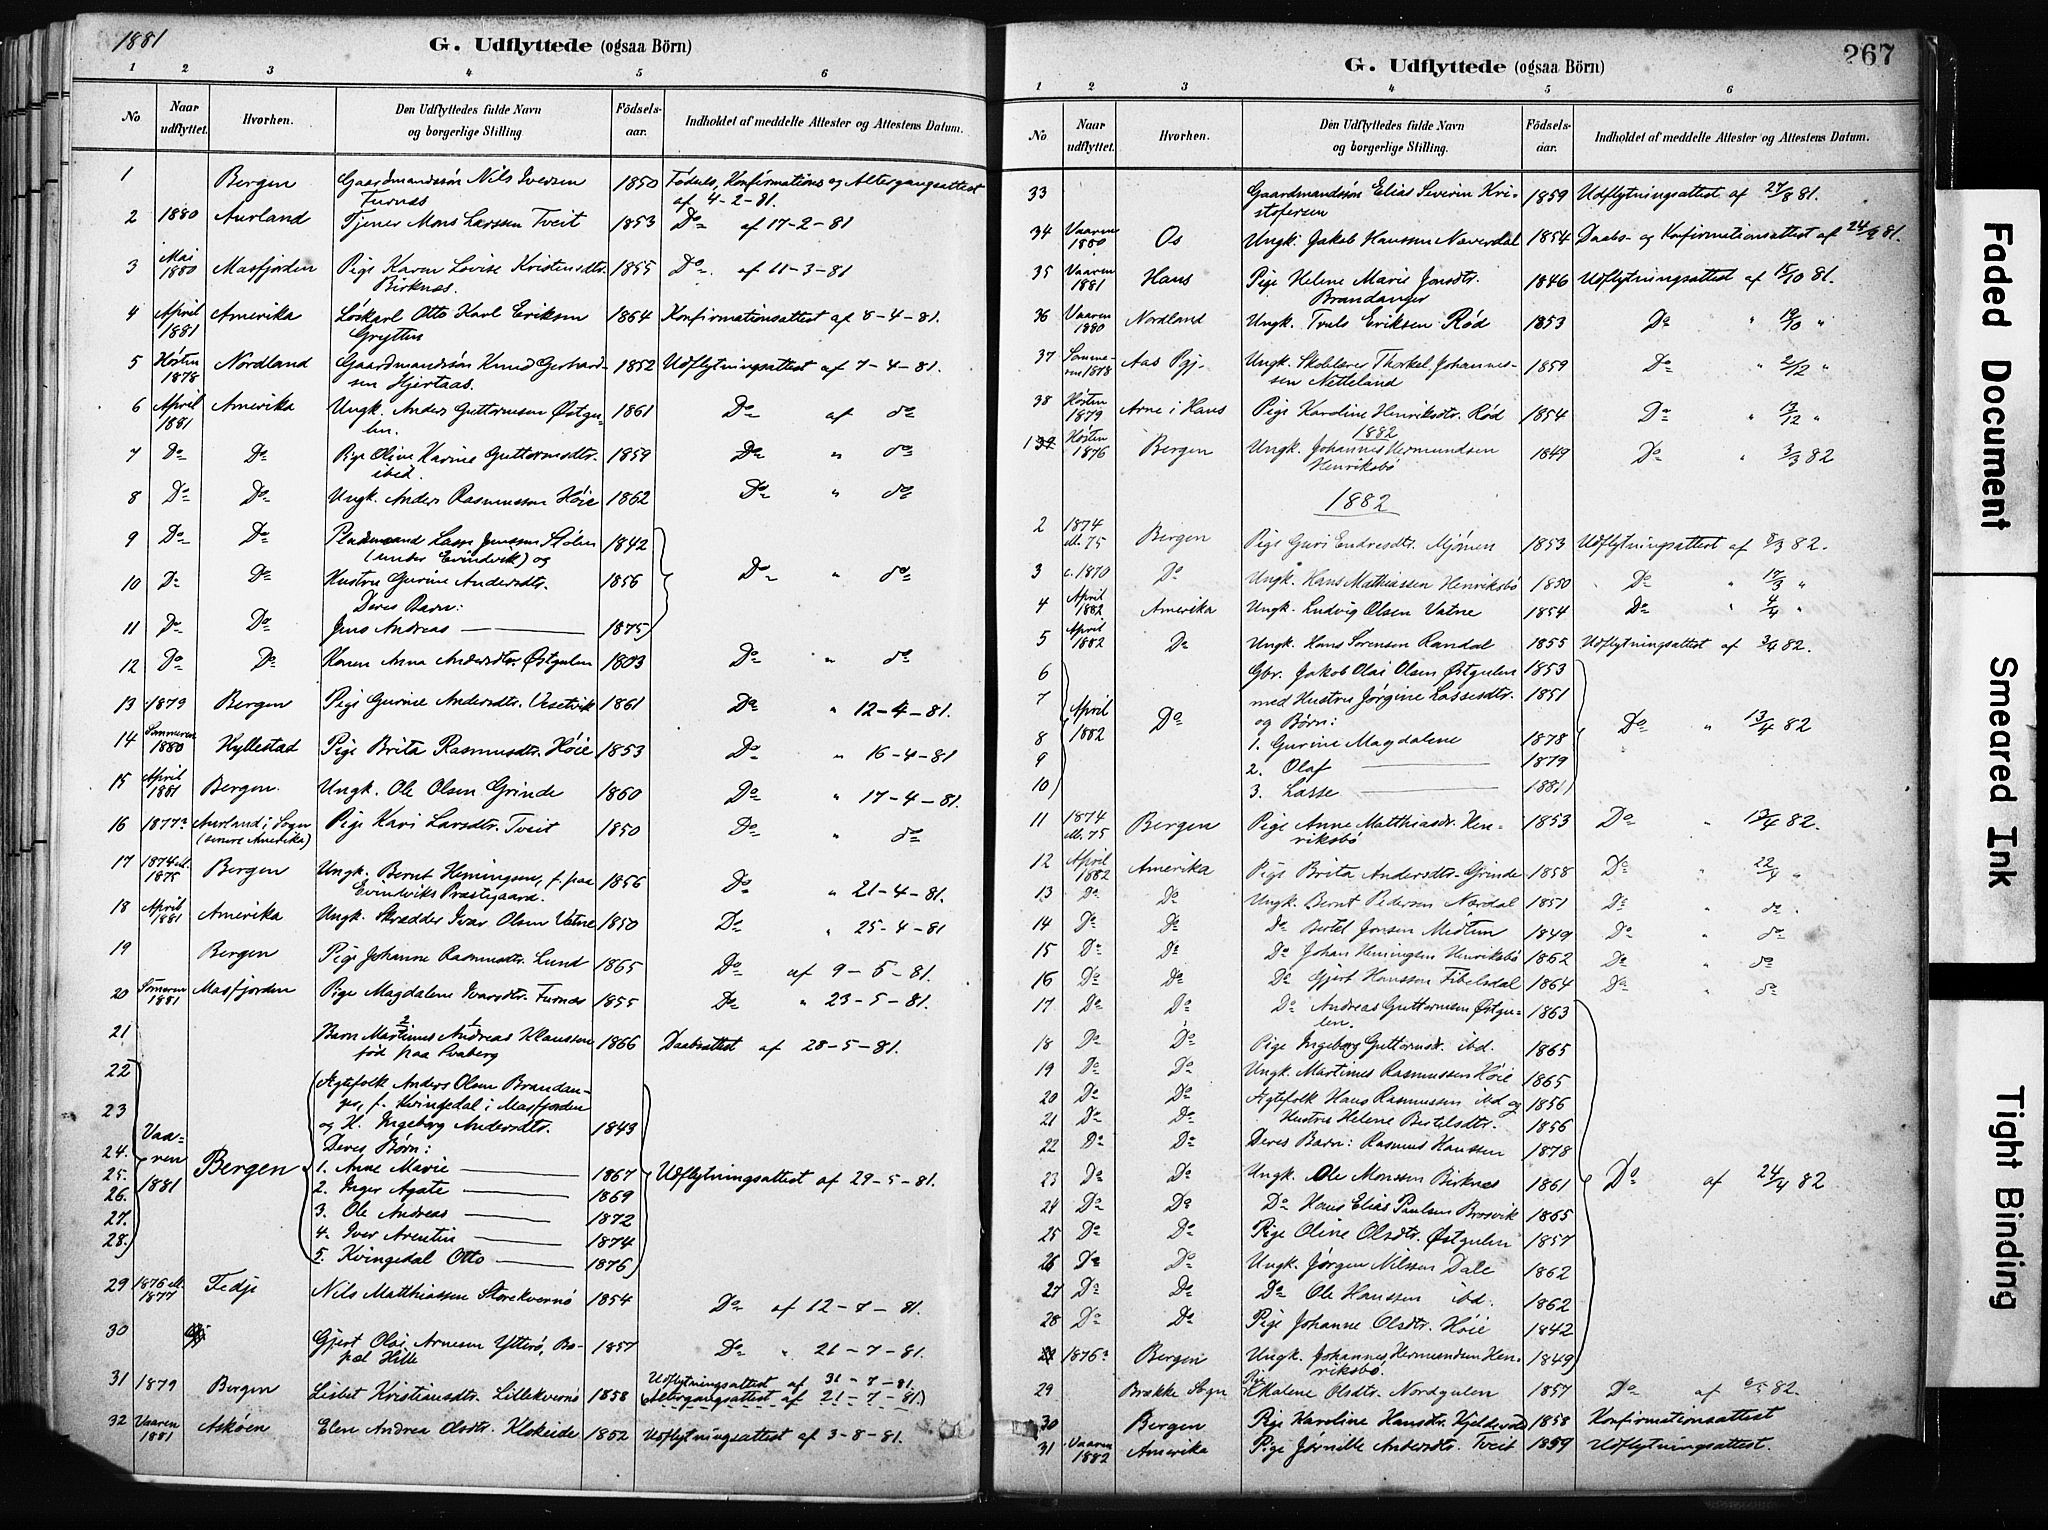 1881
G. Udflyttede (ogsaa Börn)
1 2 3 4 5 6
No Naar udflyttet. Hvorhen. Den Udflyttedes fulde Navn og borgerlige Stilling Födsels-aar. Indholdet af meddelte Attester og Attestens Datum.
1 Bergen Gaardmandssøn Nils Iversen 1850 Fødsels, Konfirmations og Altergangsattest
Furnæs af 4-2-81.
2 1880 Aurland Tjener Mons Larssen Tveit 1853 Do af 17-2-81
3 Mai 1880 Masfjorden Pige Karen Lovise Kristensdtr. 1855 Do. af 11-3-81
Birknæs.
4 April 1881 Amerika Løskarl Otto Karl Eriksen 1864 Konfirmationsattest af 8-4-81.
Grytten
5 Høsten 1878 Nordland Gaardmandssøn Knud Gerhard- 1852 Udflytningsattest af 7-4-81.
sen Hjertaas.
6 April 1881 Amerika Ungk. Anders Guttormsen Østgu- 1861 Do af do
len.
7 Do Do Pige Oline Karine Guttormsdtr. 1859 Do " do
ibid.
8 Do Do Ungk. Anders Rasmussen Høie 1862 Do " do
9 Do Do Pladsmand Lasse Jenssen Stølen 1842
(under Evindvik) og
10 Do Do Hustru Gurine Andersdtr. 1856 Do " do
Deres Barn:
11 Do Do Jens Andreas 1875
12 Do Do Karen Anna Andersdtr. Østgulen 1803 Do " do
13 1879 Bergen Pige Gurine Andersdtr. Vesetvik 1861 Do " 12-4-81.
14 Sommeren 1880 Hyllestad Pige Brita Rasmusdtr. Høie 1853 Do " 16-4-81
15 April 1881 Bergen. Ungk. Ole Olsen Grinde 1860 Do " 17-4-81.
16 1877? Aurland i Sogn Pige Kari Larsdtr. Tveit 1850 Do " do
(senere Amerika)
17 1874 ell. 1875 Bergen Ungk. Bernt Hemingsen, f. paa 1856 Do " 21-4-81.
Evindviks Præstegaard.
18 April 1881 Amerika Ungk. Skrædder Ivar Olsen Vatne 1850 Do " 25-4-81
19 Bergen Pige Johanne Rasmusdtr. Lund 1865 Do af 9-5-81.
20 Sommeren 1881 Masfjorden Pige Magdalene Ivarsdtr. Furnæs 1855 Do " 23-5-81.
21 Barn Martinus Andreas Klaussen 1866 Daabsattest af 28-5-81.
2 1
fød paa Svaberg
22 Ægtefolk Anders Olsen Brandan-
23 ger, f. Kvingedal i Masfjorden
og H. Ingeborg Andersdtr. 1843
24. Vaaren 1881 Bergen Deres Børn: Udflytningsattest af 29-5-81.
25. 1. Anne Marie 1867
26. 2. Inger Agate 1869
27. 3. Ole Andreas 1872
28. 4. Iver Arentin 1874
5. Kvingedal Otto 1876
29 1876 ell. 1877 Fedje Nils Matthiassen Storekvernø 1854 Do af 12-7-81.
30 Gjert Olai Arnesen Ytterø, Bo- 1857 Do " 21-7-81.
pæl Hille
31 1879 Bergen Lisbet Kristiansdtr. Lillekvernø 1858 Udflytningsattest af 31-7-81.
(Altergangsattest af 21-7-81.)
32 Vaaren 1881 Askøen Elen Andrea Olsdtr. Kleiveide 1862 Udflytningsattest af 3-8-81.
G. Udflyttede (ogsaa Börn)
267
1 2 3 4 5 6
No Naar udflyttet. Hvorhen. Den Udflyttedes fulde Navn og borgerlige Stilling. Födsels-aar. Indholdet af meddelte Attester og Attestens Datum.
33 Gaardmandssøn Elias Severin Kri- 1859 Udflytningsattest af 27/8 81.
stofersen
34 Vaaren 1880 Os Ungk. Jakob Hanssen Naverdal 1854 Daabs- og Konfirmationsattest af 24/9 81.
35 Vaaren 1881 Haus Pige Helene Marie Jonsdtr. 1846 Udflytningsattest af 15/10 81.
Brandanger
36 Vaaren 1880 Nordland Ungk. Truls Eriksen Rød 1853 Do " 19/10 "
37 Sommeren 1878 Aas Pgj. Ungk. Skolelærer Thorkel Johannes- 1859 Do " 2/12 "
sen Netteland
38 Høsten 1879 Arne i Haus Pige Karoline Henriksdtr. Rød 1854 Do " 13/12 "
1882
1 39 Høsten 1876 Bergen Ungk. Johannes Hermundsen 1849 Do " 3/3 82
Henriksbø
1882
2 1874 ell. 75 Bergen Pige Guri Endresdtr. Mjømen 1853 Udflytningsattest af 8/3 82.
3 c. 1870 Do Ungk. Hans Mathiassen Henriksbø 1850 Do " 17/3 "
4 April 1882 Amerika Ungk. Ludvig Olsen Vatne 1854 Do " 4/4 "
5 April 1882 Do Ungk. Hans Sørensen Randal 1855 Udflytningsattest af 3/4 82.
6 Gbr. Jakob Olai Olsen Østgulen 1853
7 April 1882 Do med Hustru Jørgine Lassesdtr. 1851 Do " 13/4 82
og Børn:
8 1. Gurine Magdalene 1878
9 2. Olaf 1879
10 3. Lasse 1881
11 1874 ell. 75 Bergen Pige Anne Matthiasdr. Hen- 1853 Do " 17/4 82.
riksbø
12 April 1882 Amerika Pige Brita Andersdtr. Grinde 1858 Do " 22/4 "
13 Do Do Ungk. Bernt Pedersen Nærdal 1851 Do " do.
14 Do Do Do Bertel Jonsen Midtun 1849 Do " do
15 Do Do Do Johan Hemingsen Henriksbø 1862 Do " do
16 Do Do Do Gjert Hanssen Fibelsdal 1864 Do " do
17 Do Do Do Andreas Guttormsen Østgu- 1863
len.
18 Do Do Pige Ingeborg Guttormsdr. ibd. 1865
19 Do Do Ungk. Martinus Rasmussen Høie 1865
20 Do Do Ægtefolk Hans Rasmussen ibd og 1856
21 Do Do Hustru Helene Bertelsdtr. 1856
22 Do Do Deres Barn: Rasmus Hanssen 1878
23 Do Do Ungk. Ole Monssen Birknes 1861 Do af 24/4 82
24 Do Do Do Hans Elias Paulsen Brosvik 1865
25 Do Do Pige Oline Olsdtr. Østgulen 1857
26 Do Do Ungk. Jørgen Nilssen Dale 1862
27 Do Do Do Ole Hanssen ibd. 1862
28 Do Do Pige Johanne Olsdtr. Høie 1842
1876? Bergen Ungk. Johannes Hermundsen Hen- 1849
riksbø.
29 Brække Sogn Pige Malene Olsdtr. Nordgulen 1857 Do af 6/5 82.
30 Bergen Pige Karoline Hansdtr. Kjellevold 1858 Konfirmationsattest
31 Vaaren 1882 Amerika Pige Jørnille Andersdtr. Tveit 1859 Udflytningsattest.
Faded Document
Smeared Ink
Tight Binding